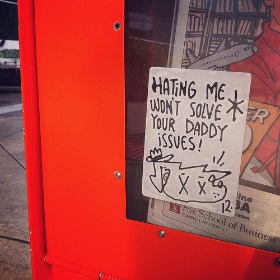 HATING ME
WON'T SOLVE
YOUR DADDY
ISSUES!
12
Fox School of Business